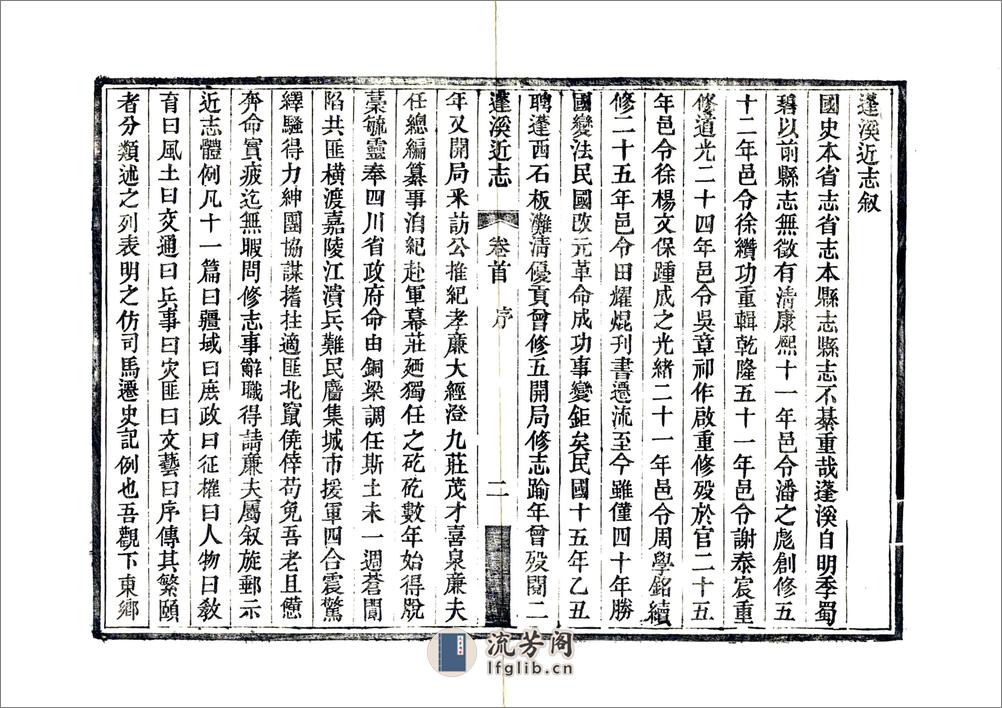 蓬溪近志叙
國史本省志省志本縣志縣志不綦重哉蓬溪自明季蜀
碧以前縣志無徵有淸康熙十一年邑令潘之彪創修五
十二年邑令徐纘功重輯乾隆五十一年邑令謝泰宸重
修道光二十四年邑令吳章祁作啟重修歿於官二十五
年邑令徐楊文保踵成之光緒二十一年邑令周學銘續
修二十五年邑令田燿焜刊書遷流至今雖僅四十年勝
國變法民國改元革命成功事變鉅矣民國十五年乙丑
聘蓬西石板灘淸優貢曾修五開局修志踰年曾歿閱二
蓬溪近志 卷首 序 二
年又開局采訪公推紀孝廉大經澄九莊茂才喜泉廉夫
任總編纂事洎紀赴軍幕莊廼獨任之矻矻數年始得脫
藁毓靈奉四川省政府命由銅梁調任斯土未一週蒼閬
陷共匪橫渡嘉陵江潰兵難民麕集城市援軍四合震驚
繹騷得力紳團協謀撐拄適匪北竄僥倖苟免吾老且憊
奔命實疲迄無暇問修志事辭職得請廉夫屬叙旋郵示
近志體例凡十一篇曰疆域曰庶政曰征榷曰人物曰敎
育曰風土曰交通曰兵事曰灾匪曰文藝曰序傳其繁頤
者分類述之列表明之仿司馬遷史記例也吾觀下東鄉
流芳阁
lfglib.cn